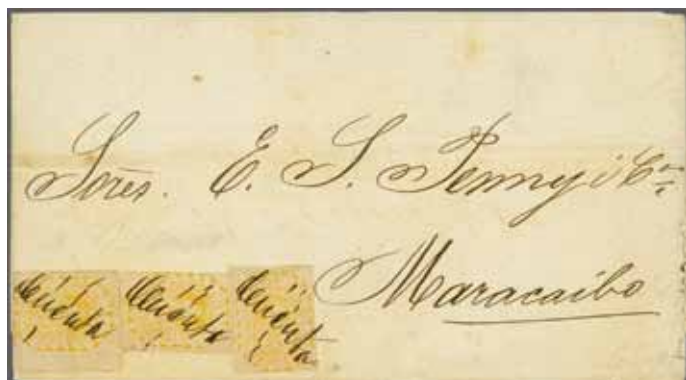 Sores. E. S. Penny i Ca
Maracaibo
Cúcuta Cúcuta Cúcuta